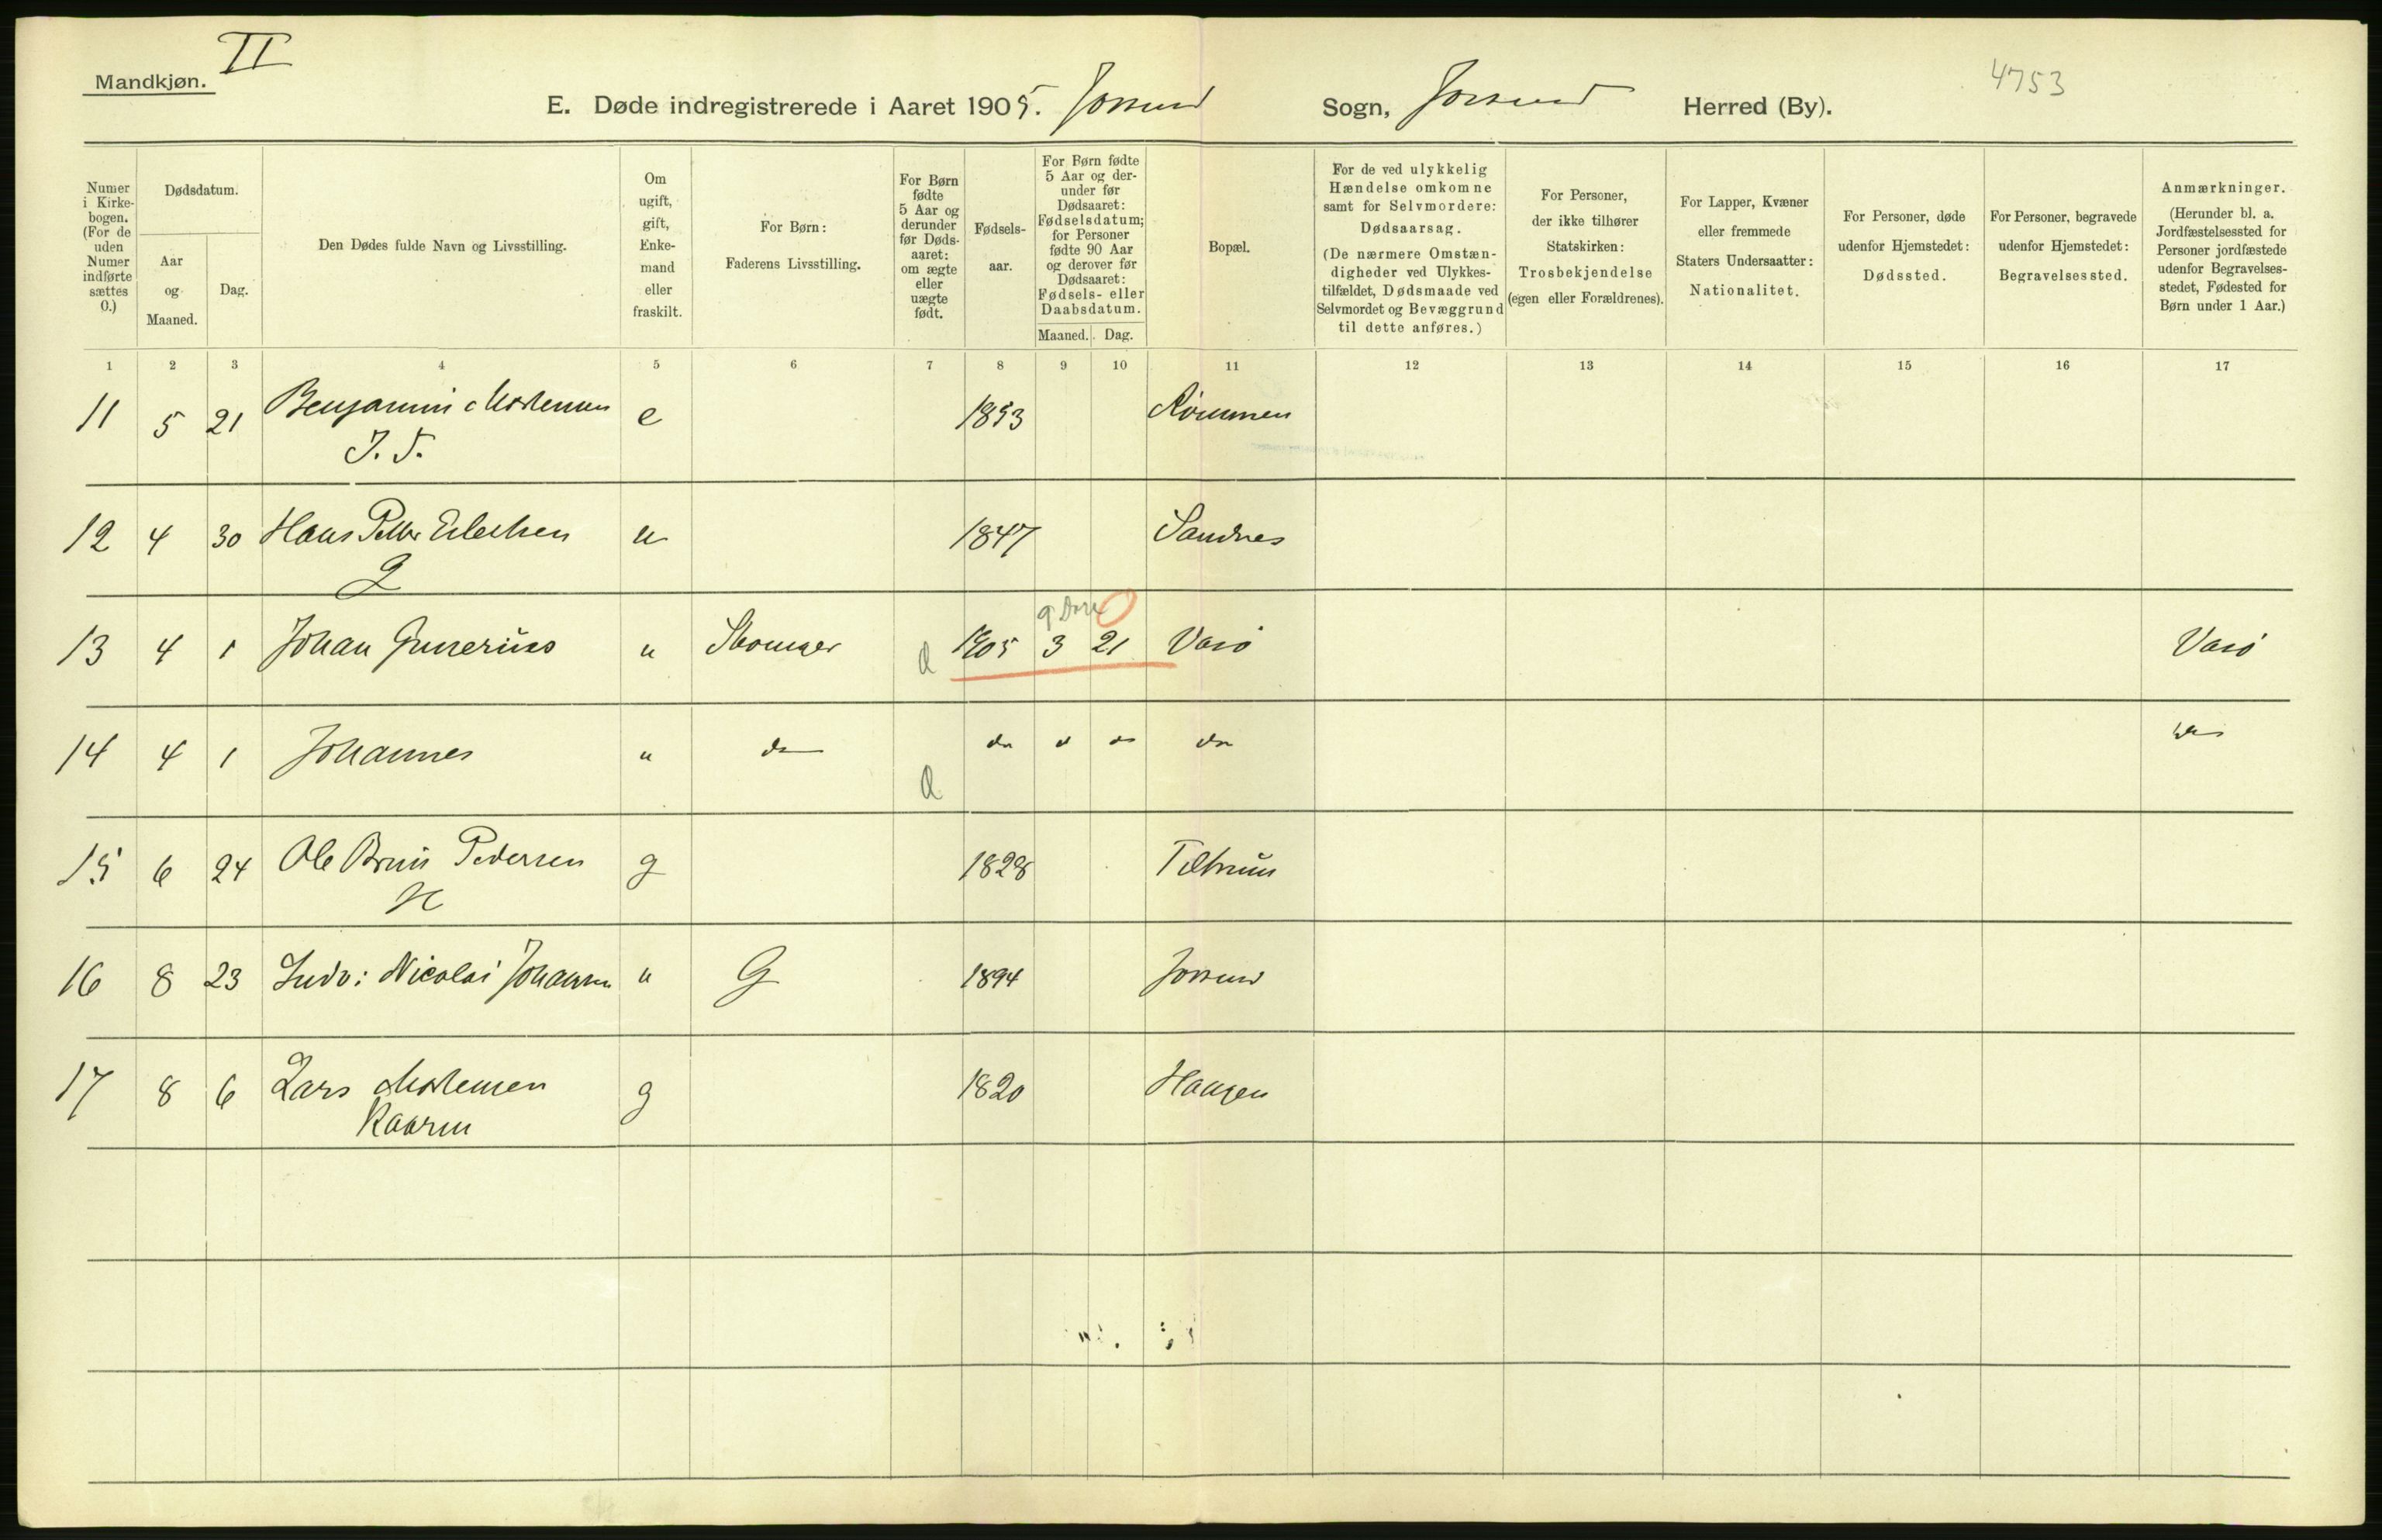 Mandkjøn. II
4753
E. Døde indregistrerede i Aaret 1905. Jøssund Sogn, Jøssund Herred (By).
Numer i Kirkebogen. (For de uden Numer indførte sættes 0.)
Dødsdatum.
Aar og Maaned.
Dag.
Den Dødes fulde Navn og Livsstilling.
Om ugift, gift, Enkemand eller fraskilt.
For Børn: Faderens Livsstilling.
For Børn fødte 5 Aar og derunder før Dødsaaret: om ægte eller uægte født.
Fødselsaar.
For Børn fødte 5 Aar og derunder før Dødsaaret: Fødselsdatum; for Personer fødte 90 Aar og derover før Dødsaaret: Fødsels- eller Daabsdatum.
Maaned. Dag.
Bopæl.
For de ved ulykkelig Hændelse omkomne samt for Selvmordere: Dødsaarsag.
(De nærmere Omstændigheder ved Ulykkestilfældet, Dødsmaade ved Selvmordet og Bevæggrund til dette anføres.)
For Personer, der ikke tilhører Statskirken: Trosbekjendelse (egen eller Forældrenes).
For Lapper, Kvæner eller fremmede Staters Undersaatter: Nationalitet.
For Personer, døde udenfor Hjemstedet: Dødssted.
For Personer, begravede udenfor Hjemstedet: Begravelsessted.
Anmærkninger.
(Herunder bl. a. Jordfæstelsessted for Personer jordfæstede udenfor Begravelsesstedet, Fødested for Børn under 1 Aar.)
1 2 3 4 5 6 7 8 9 10 11 12 13 14 15 16 17
11 5 21 Benjamin Mortensen e 1853 Rømmen
J. F.
12 4 30 Hans Petter Ellefsen u 1847 Sandnes
13 4 1 Johan Gunerius u d 1905 3 21 Vasø Vasø
14 4 1 Johannes u do d do do do do do
15 6 24 Ole Bruun Pedersen g 1828
16 8 23 Ludv: Nicolai Johansen u G 1894 Jøssund
17 8 6 Lars Mortensen g 1820 Haugen
Kaarm